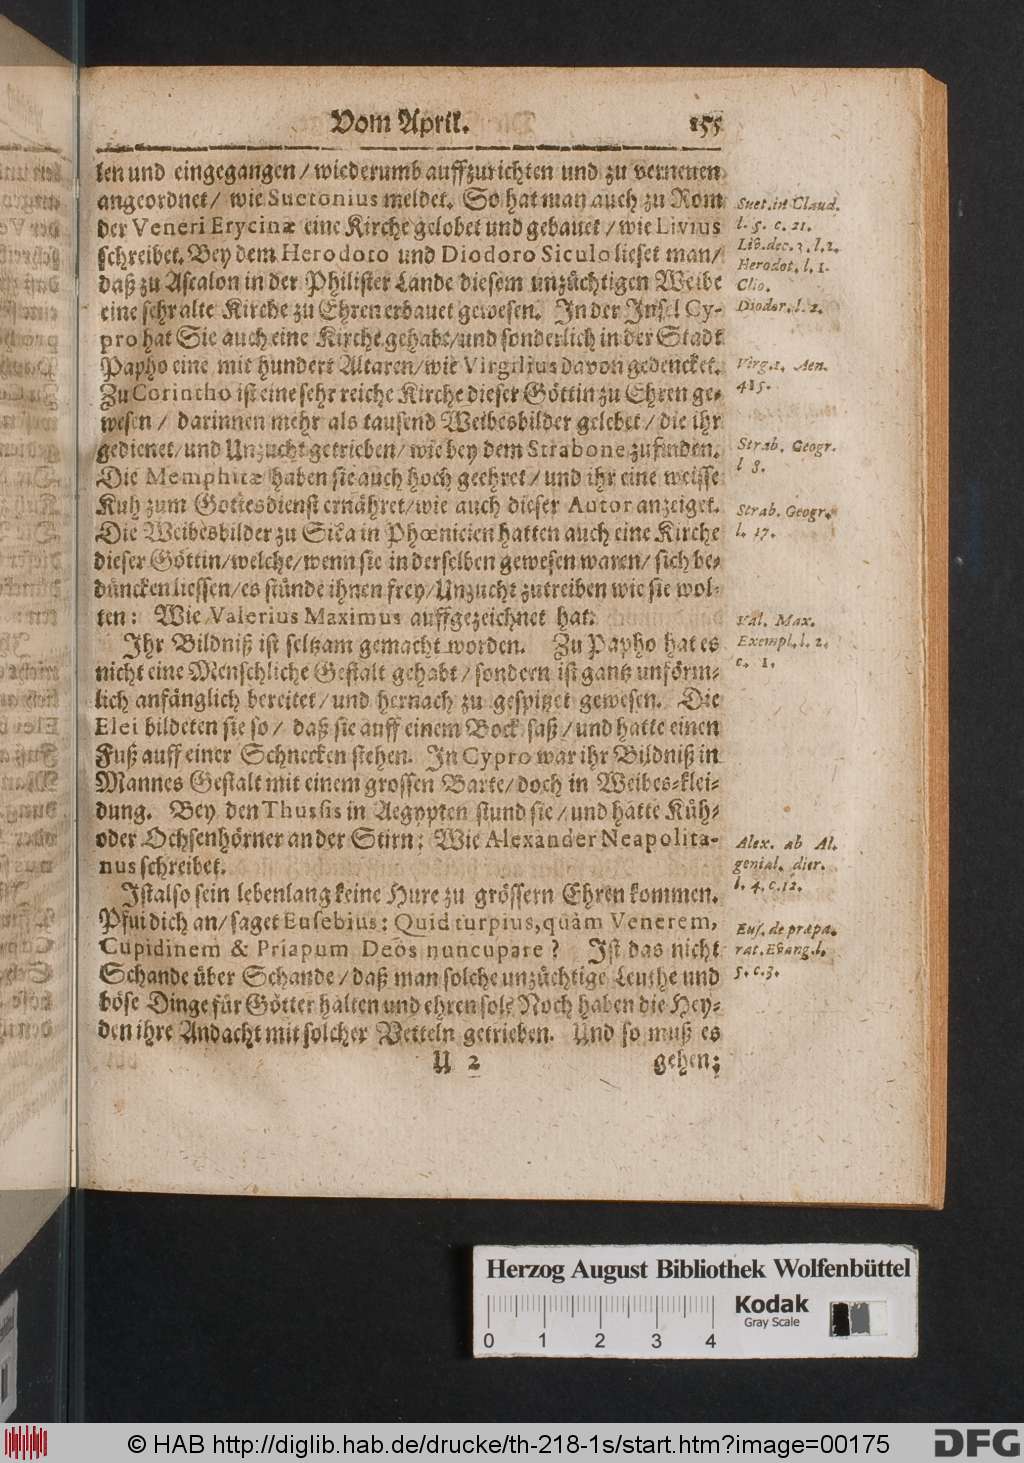 Vom April. 155
len und eingegangen / wiederumb auffzurichten und zu verneuen
angeordnet / wie Suetonius meldet. So hat man auch zu Rom
der Veneri Erycinæ eine Kirche gelobet und gebauet / wie Livius
schreibet. Bey dem Herodoto und Diodoro Siculo lieset man /
daß zu Ascalon in der Philister Lande diesem unzüchtigen Weibe
eine sehr alte Kirche zu Ehren erbauet gewesen. In der Insel Cy-
pro hat Sie auch eine Kirche gehabt / und sonderlich in der Stadt
Papho eine mit hundert Altaren / wie Virgilius davon gedencket.
Zu Corintho ist eine sehr reiche Kirche dieser Göttin zu Ehren ge-
wesen / darinnen mehr als tausend Weibesbilder gelebet / die ihr
gedienet / und Unzucht getrieben / wie bey dem Strabone zufinden.
Die Memphitæ haben sie auch hoch geehret / und ihr eine weisse
Kuh zum Gottesdienst ernähret / wie auch dieser Autor anzeiget.
Die Weibesbilder zu Sika in Phœnicien hatten auch eine Kirche
dieser Göttin / welche / wenn sie in derselben gewesen waren / sich be-
düncken liessen / es stünde ihnen frey / Unzucht zutreiben wie sie wol-
ten: Wie Valerius Maximus auffgezeichnet hat.
Ihr Bildniß ist seltzam gemacht worden. Zu Papho hat es
nicht eine Menschliche Gestalt gehabt / sondern ist gantz unförm-
lich anfänglich bereitet / und hernach zu gespitzet gewesen. Die
Elei bildeten sie so / daß sie auff einem Bock saß / und hatte einen
Fuß auff einer Schnecken stehen. In Cypro war ihr Bildniß in
Mannes Gestalt mit einem grossen Barte / doch in Weibes-klei-
dung. Bey den Thussis in Aegypten stund sie / und hatte Küh-
oder Ochsenhörner an der Stirn: Wie Alexander Neapolita-
nus schreibet.
Ist also sein lebenlang keine Hure zu grössern Ehren kommen.
Pfui dich an / saget Eusebius: Quid turpius, quàm Venerem,
Cupidinem & Priapum Deos nuncupare? Ist das nicht
Schande über Schande / daß man solche unzüchtige Leuthe und
böse Dinge für Götter halten und ehren sol? Noch haben die Hey-
den ihre Andacht mit solcher Vetteln getrieben. Und so muß es
U 2 gehen;
Suet. in Claud.
l. 5. c. 21.
Lib. dec. 3. l. 2.
Herodot. l. 1.
Clio.
Diodor. l. 2.
Virg. 1. Aen.
415.
Strab. Geogr.
l 8.
Strab. Geogr.
l. 17.
Val. Max.
Exempl. l. 2.
c. 1.
Alex. ab Al.
genial. dier.
l. 4. c. 12.
Eus. de præpa.
rat. Evang. l.
5. c. 3.
Herzog August Bibliothek Wolfenbüttel
0 1 2 3 4
Kodak
Gray Scale
© HAB http://diglib.hab.de/drucke/th-218-1s/start.htm?image=00175
DFG